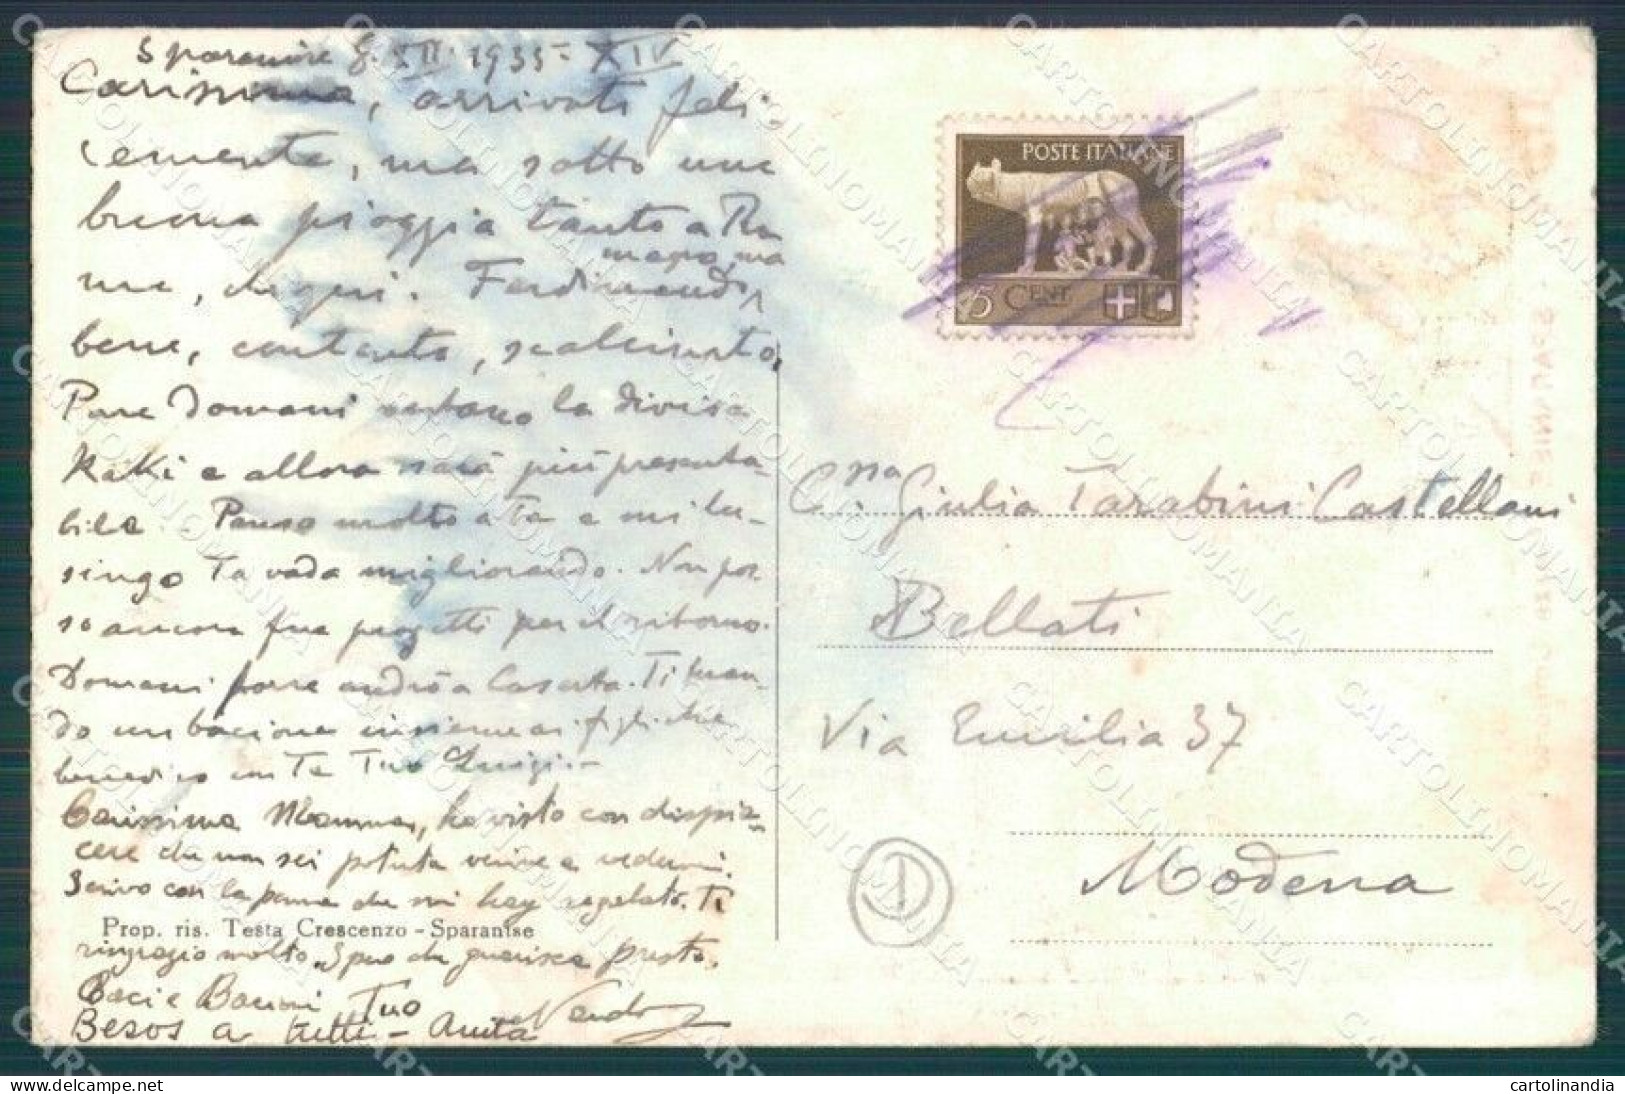 Sparanise 8. XII. 1935 - XIV
Carissima, arrivati feli-
cemente, ma sotto una
buona pioggia tanto a Ro
magro, ma
ma, che qui. Ferdinando
bene, contento, scalcinato,
Pare Domani vestano la divisa
Kaki e allora sarà più presenta-
bile. Penso molto a Te e mi lu-
singo Tu vada migliorando. Non pos-
so ancora fare progetti per il ritorno.
Domani forse andrò a Caserta. Ti man-
do un bacione insieme ai figli che
benedico con Te Tuo Luigi. -
Carissima Mamma, ho visto con dispia-
cere che non sei potuta venire a vedermi.
Scrivo con la penna che mi hai regalato. Ti
Prop. ris. Testa Crescenzo - Sparanise
ringrazio molto. Spero che guarisca presto.
Baci e Bacioni Tuo Nando
Besos a tutti - Anita
POSTE ITALIANE
5 CENT.
C.ssa Giulia Tarabini Castellani
Bellati
Via Emilia 37
Modena
1
CARTOLINOMANIA
cartolinandia